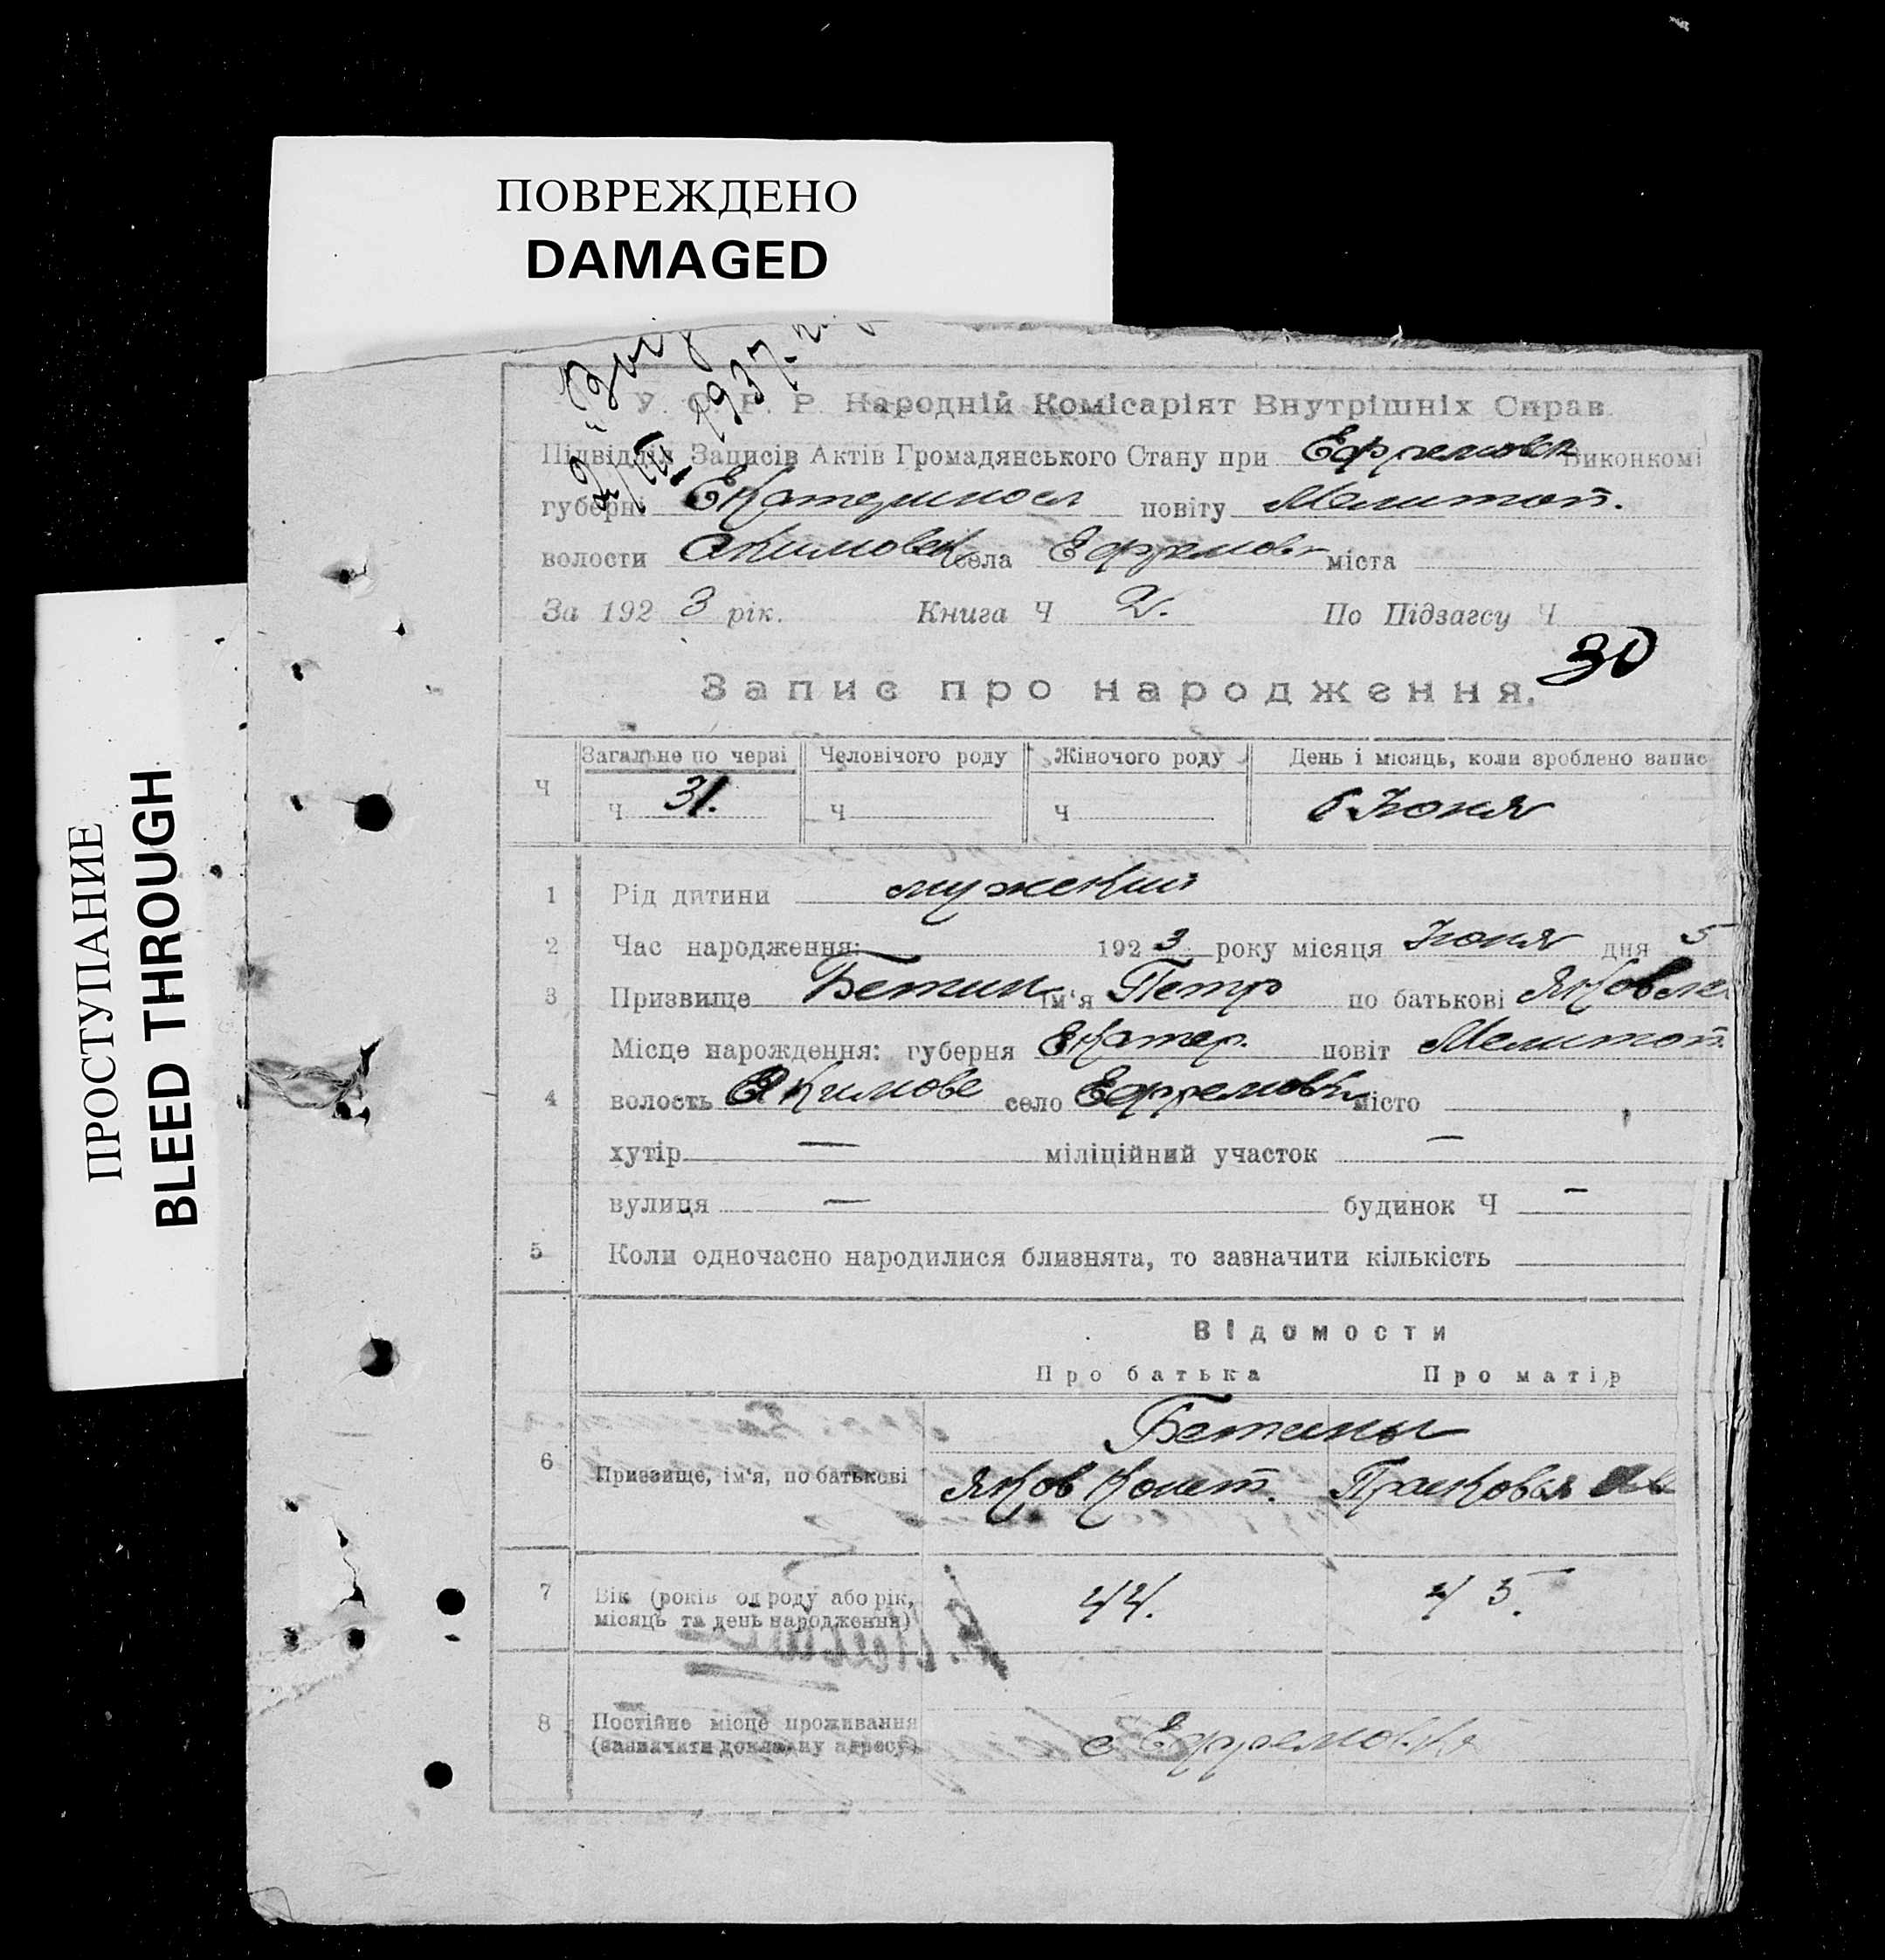 ПОВРЕЖДЕНО
DAMAGED
ПРОСТУПАНИЕ
BLEED THROUGH
1937
У. С. Р. Р. Народній Комісаріят Внутрішніх Справ
Підвідділ Записів Актів Громадянського Стану при Ефремовск Виконкомі
губерні Екатериносл повіту Мелитоп.
волости Акимовск села Ефремовк міста
За 192 3 рік. Книга Ч 2. По Підзагсу Ч
30
Запис про народження.
Загальне по черзі Человічого роду Жіночого роду День і місяць, коли зроблено запис
Ч Ч 31. Ч Ч 6 Июня
1 Рід дитини мужский
2 Час народження: 192 3 року місяця Июня дня 5
3 Призвище Бетин ім'я Петр по батькові Яковле
Місце народження: губерня Екатер. повіт Мелитоп.
4 волость Акимовс село Ефремовка місто
хутір — міліційний участок —
вулиця — будинок Ч —
5 Коли одночасно народилися близнята, то зазначити кількість
Відомости
Про батька Про матір
Бетины
6 Призвище, ім'я, по батькові Яков Конст. Прасковья
7 Вік (років од роду або рік, місяць та день народження) 44. 45.
8 Постійне місце проживання (зазначити докладну адресу) с Ефремовка